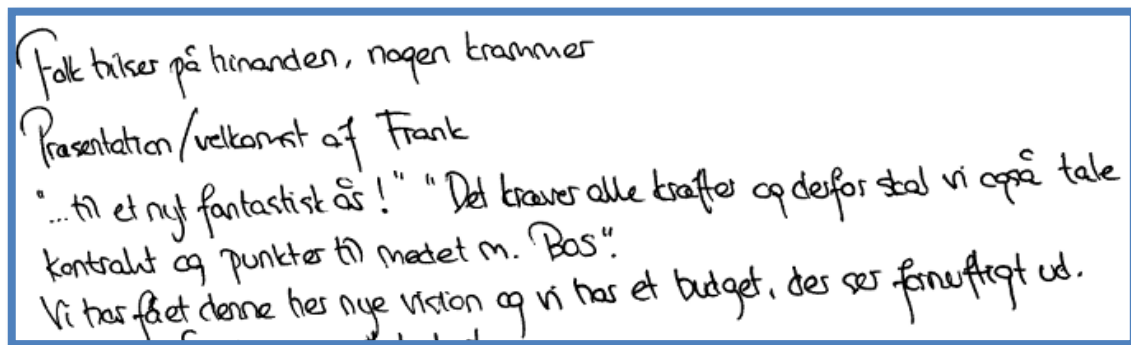 Folk hilser på hinanden, nogen krammer
Præsentation/velkomst af Frank
"...til et nyt fantastisk år!" "Det kræver alle kræfter og derfor skal vi også tale
kontrakt og punkter til mødet m. "BOS".
Vi har fået denne her nye vision og vi har et budget, der ser fornuftigt ud.